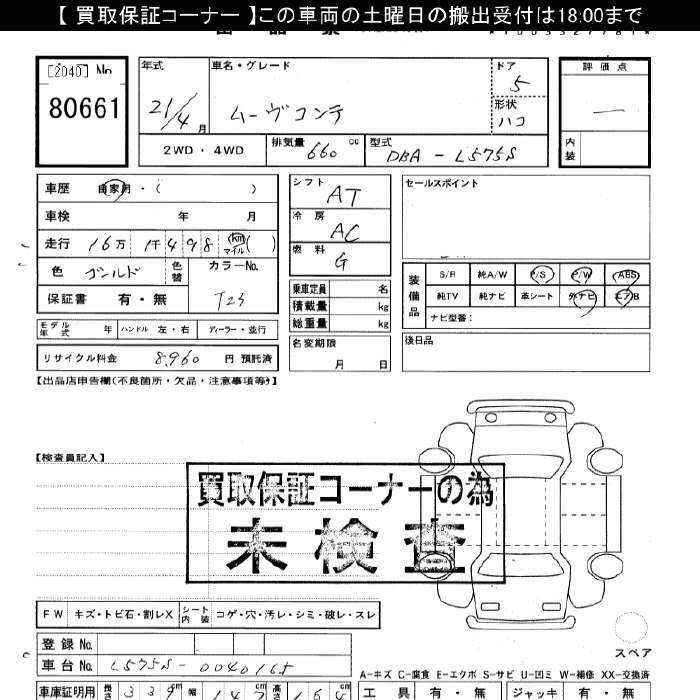 【 買取保証コーナー 】この車両の土曜日の搬出受付は18:00まで
[2040] No
80661
年式
21/4 月
車名・グレード
ムーヴコンテ
ドア
5
形状
ハコ
評価点
—
内装
2WD・4WD
排気量 660 cc
型式 DBA-L575S
車歴 自家用・( )
車検 年 月
走行 16万 1千498 km マイル ( )
色 ゴールド
色替
カラーNo.
T23
保証書 有・無
シフト
AT
冷房
AC
燃料
G
乗車定員 名
積載量 kg
総重量 kg
セールスポイント
装備品
S/R 純A/W P/S P/W ABS
純TV 純ナビ 革シート 外ナビ エアB
ナビ型番:
モデル年式 年 ハンドル 左・右 ディーラー・並行
リサイクル料金 8,960 円 預託済
名変期限
月 日
後日品
【出品店申告欄(不良箇所・欠品・注意事項等)】
【検査員記入】
買取保証コーナーの為
未検査
FW キズ・トビ石・割レX シート内装 コゲ・穴・汚レ・シミ・破レ・スレ
スペア
登録 No.
車台 No. L575S-0040165
A-キズ C-腐食 E-エクボ S-サビ U-凹ミ W-補修 XX-交換済
車庫証明用 長さ 339 cm 幅 147 高さ 164 cm
工具 有・無 ジャッキ 有・無